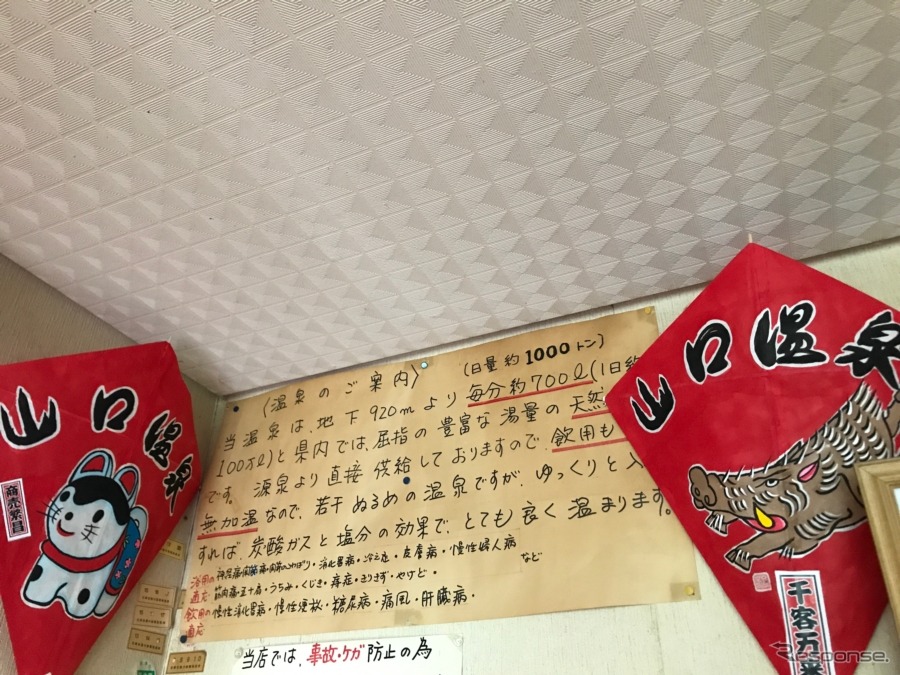 〈温泉のご案内〉
(日量約1000トン)
当温泉は、地下920mより毎分約700ℓ(1日約
100万ℓ)と県内では、屈指の豊富な湯量の天然
です。源泉より直接供給しておりますので、飲用も
無加温なので、若干ぬるめの温泉ですが、ゆっくりと入
すれば、炭酸ガスと塩分の効果で、とても良く温まります。
浴用の
適応
筋肉痛・五十肩・うちみ・くじき・痔症・きりきず・やけど・
消化器病・冷え症・皮膚病・慢性婦人病
など
飲用の
適応
慢性消化器病・慢性便秘・糖尿病・痛風・肝臓病・
当店では、事故・ケガ防止の為
山口温泉
商売繁昌
山口温泉
千客万来
Response.